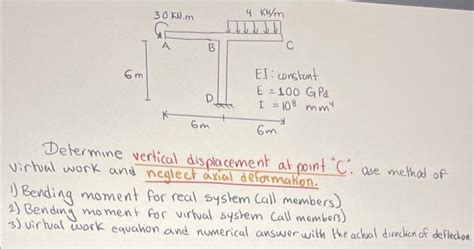 30 KN.m
4 KN/m
A
B
C
6m
D
EI: constant
E = 100 GPa
I = 10⁸ mm⁴
6m
6m
Determine vertical displacement at point "C". Use method of
virtual work and neglect axial deformation.
1) Bending moment for real system (all members)
2) Bending moment for virtual system (all members)
3) virtual work equation and numerical answer with the actual direction of deflection